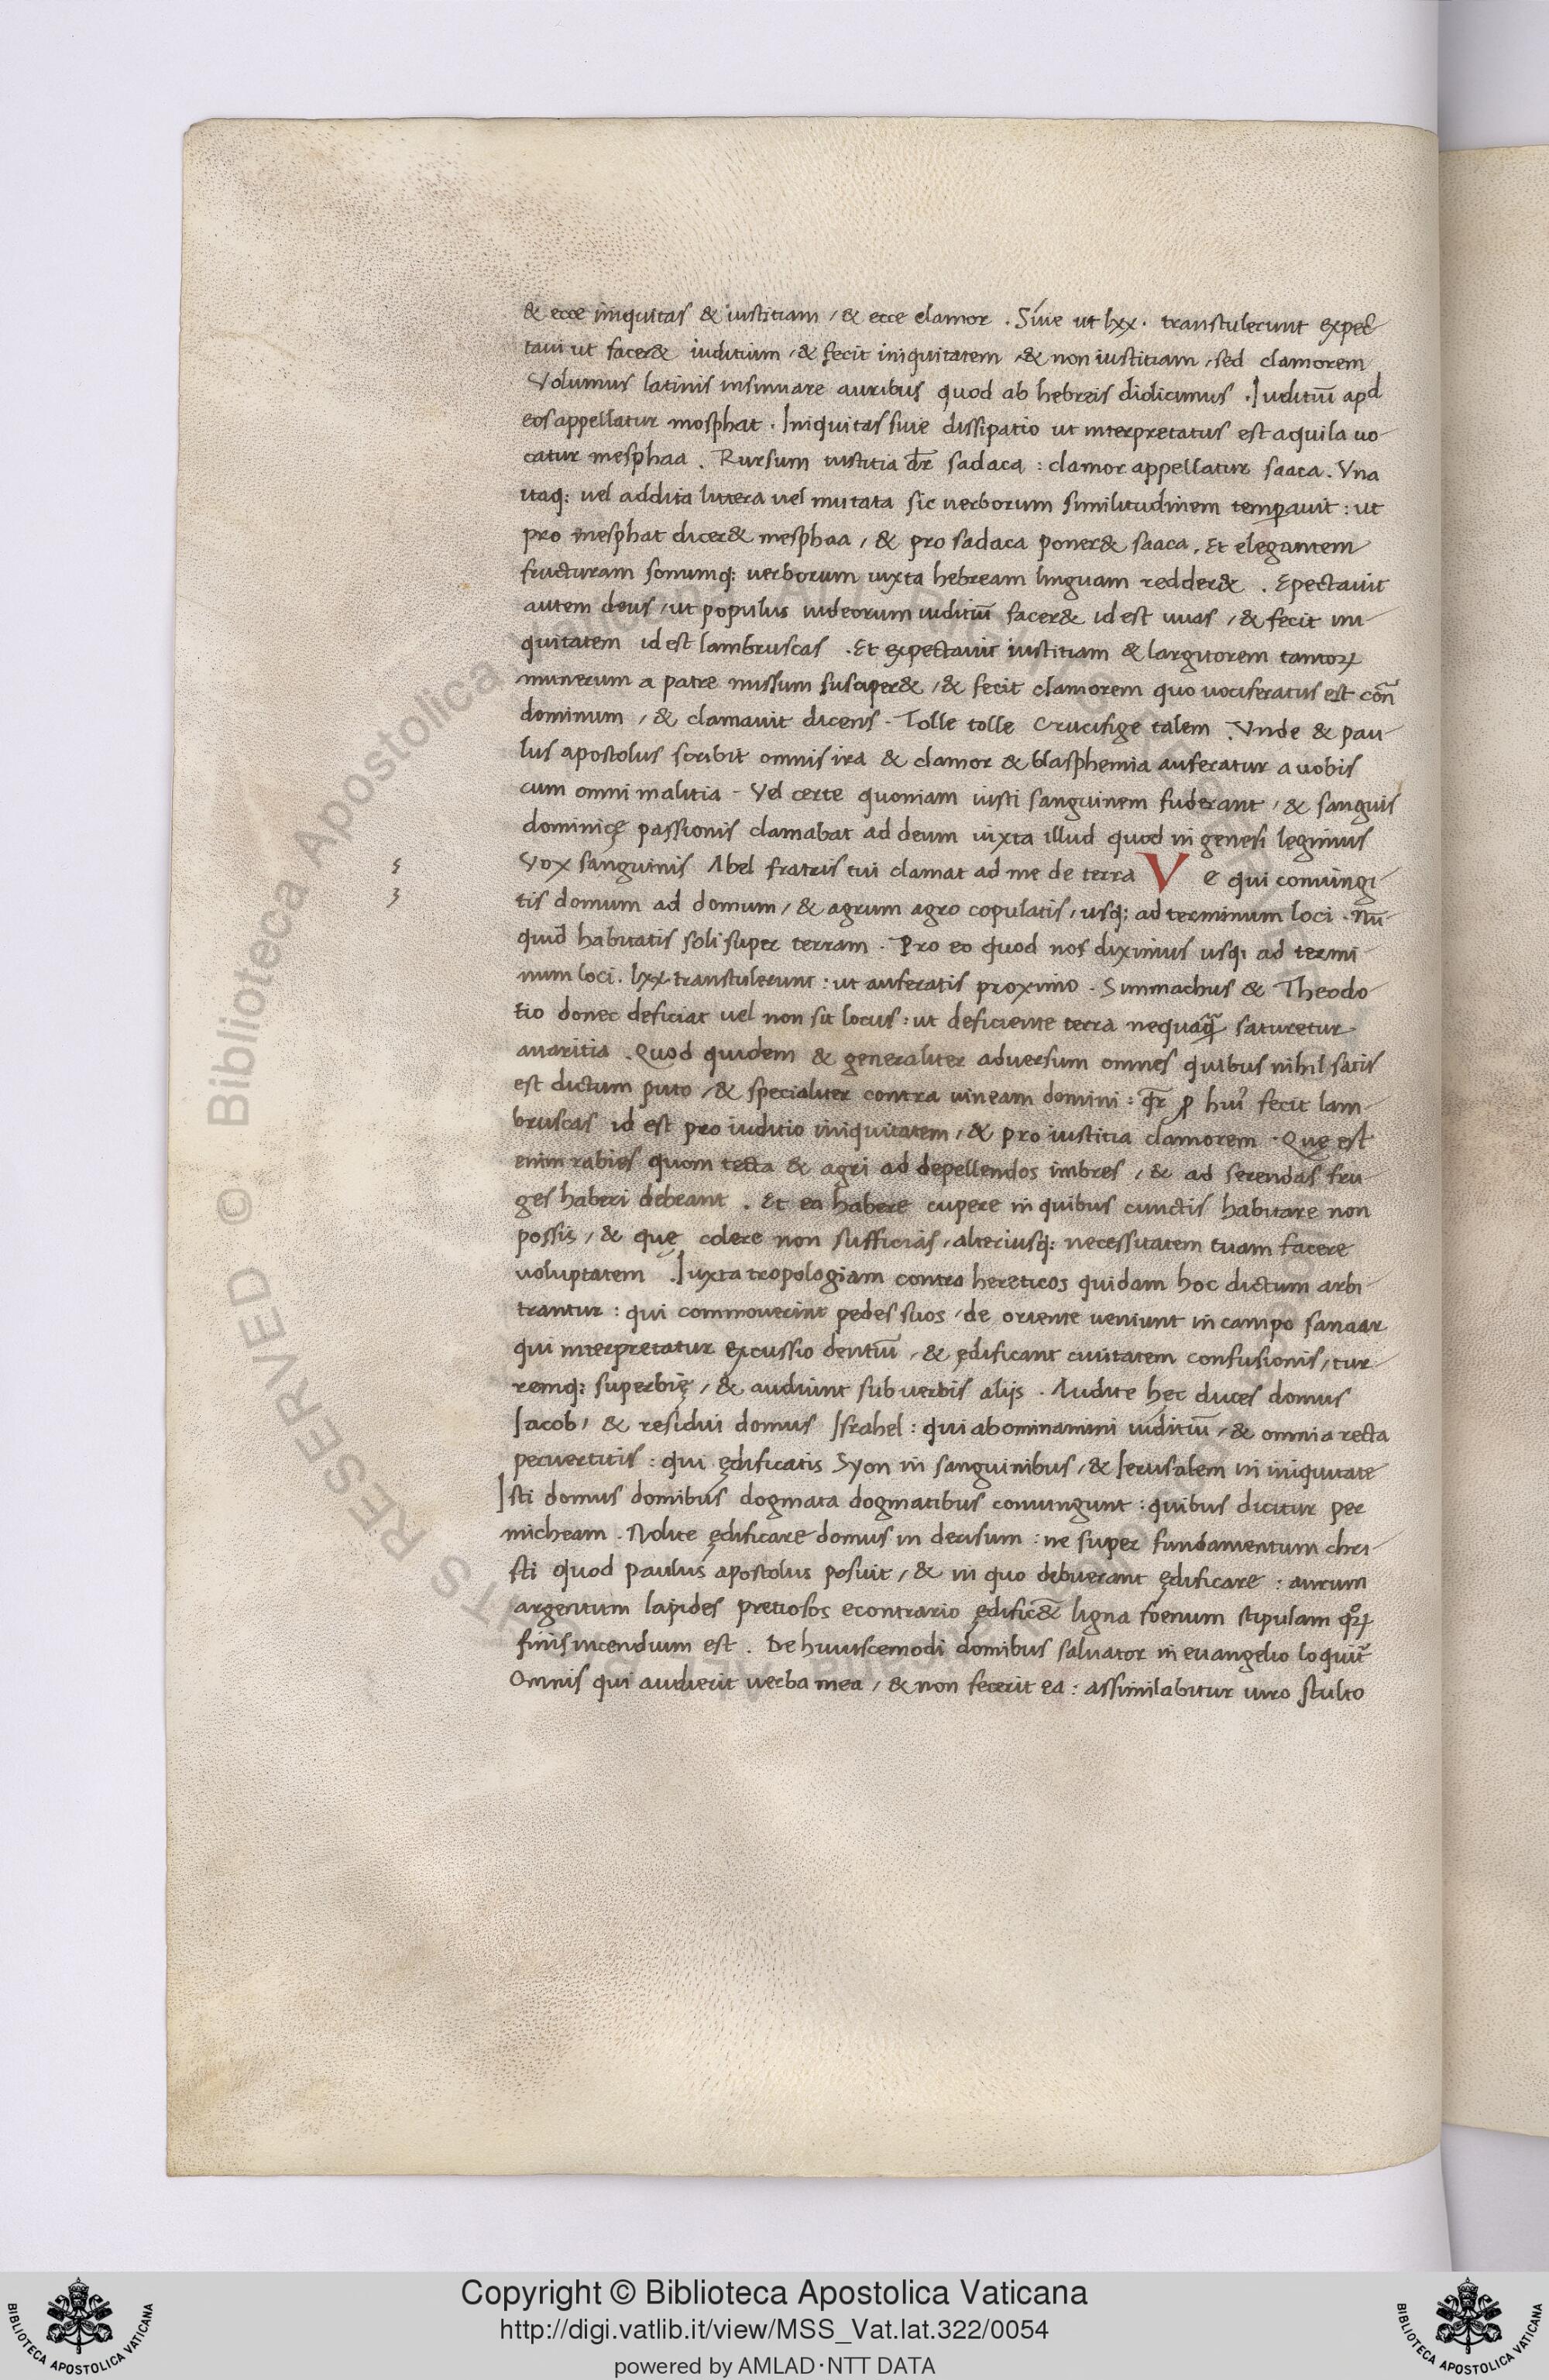 & ecce iniquitas & iustitiam / & ecce clamor . Siue ut lxx . transtulerunt expec̄
taui ut facer& iuditium / & fecit iniquitatem / & non iustitiam / sed clamorem
Volumus latinis insinuare auribus quod ab hebreis didicimus . Iuditiū apd
eos appellatur mosphat . Iniquitas siue dissipatio ut interpretatus est aquila uo-
catur mesphaa . Rursum iustitia dr̄ sadaca : clamor appellatur saaca . Vna
itaq; uel addita littera uel mutata sic uerborum similitudinem temꝑauit : ut
pro mesphat dicer& mesphaa / & pro sadaca poner& saaca . Et elegantem
fructuram sonumq; uerborum iuxta hebream linguam redder& . Epectauit
autem deus / ut populus iudeorum iuditiū facer& id est uuas / & fecit ini-
quitatem id est lambruscas . Et expectauit iustitiam & largitorem tantoꝝ
munerum a patre missum susciper& / & fecit clamorem quo uociferatus est cōn
dominum / & clamauit dicens . Tolle tolle Crucifige talem . Vnde & pau-
lus apostolus scribit omnis ira & clamor & blasphemia auferatur a uobis
cum omni malitia . Vel certe quoniam iusti sanguinem fuderant / & sanguis
dominicę passionis clamabat ad deum iuxta illud quod in genesi legimus
Vox sanguinis Abel fratris tui clamat ad me de terra Ve qui coniungi-
tis domum ad domum / & agrum agro copulatis / usq; ad terminum loci . Nū-
quid habitatis soli super terram . Pro eo quod nos diximus usq; ad termi-
num loci . lxx transtulerunt : ut auferatis proximo . Simmachus & Theodo-
tio donec deficiat uel non sit locus : ut deficiente terra nequaq̄ saturetur
auaritia . Quod quidem & generaliter aduersum omnes quibus nihil satis
est dictum puto / & specialiter contra uineam domini : qr̄ ꝓ huī fecit lam-
bruscas id est pro iuditio iniquitatem / & pro iustitia clamorem . Quę est
enim rabies quom tecta & agri ad depellendos imbres / & ad serendas fru-
ges haberi debeant . Et ea habere cupere in quibus cunctis habitare non
possis / & quę colere non sufficias / alteriusq; necessitatem tuam facere
uoluptatem . Iuxta tropologiam contra hereticos quidam hoc dictum arbi-
trantur : qui commouerint pedes suos / de oriente ueniunt in campo sanaar
qui interpretatur excussio dentiū / & ędificant ciuitatem confusionis / tur-
remq; superbię / & audiunt sub uerbis alijs . Audite hęc duces domus
Iacob / & residui domus Israhel : qui abominamini iuditiū / & omnia recta
peruertitis : qui ędificatis Syon in sanguinibus / & Ierusalem in iniquitate
Isti domus domibus dogmata dogmatibus coniungunt : quibus dicitur per
micheam . Nolite ędificare domus in derisum : ne super fundamentum chri-
sti quod paulus apostolus posuit / & in quo debuerant ędificare : aurum
argentum lapides pretiosos econtrario ędific&̄ ligna foenum stipulam qͦꝝ
finis incendium est . De huiuscemodi domibus saluator in euangelio loquit̄
Omnis qui audierit uerba mea / & non fecerit ea : assimilabitur uiro stulto
Copyright © Biblioteca Apostolica Vaticana
http://digi.vatlib.it/view/MSS_Vat.lat.322/0054
powered by AMLAD·NTT DATA
BIBLIOTECA APOSTOLICA VATICANA
BIBLIOTECA APOSTOLICA VATICANA